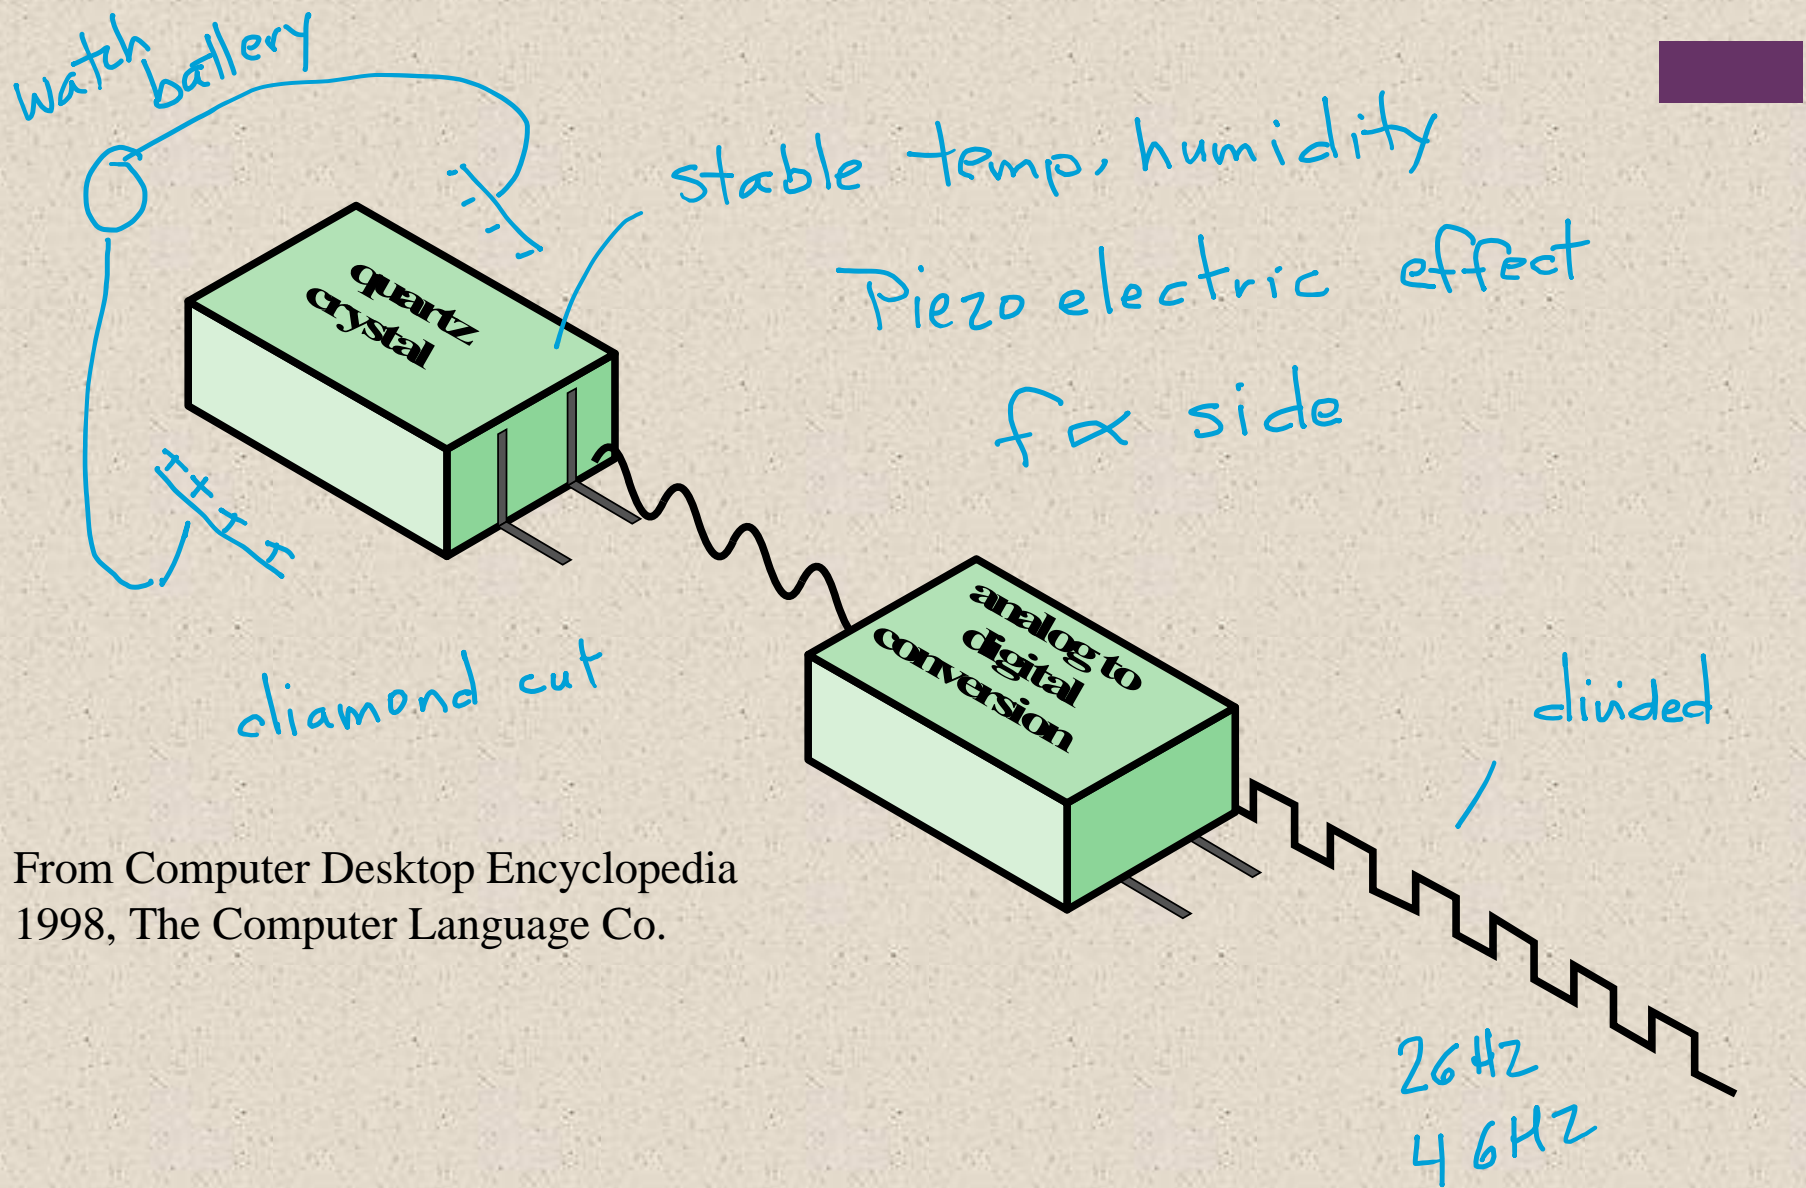 watch
battery
stable temp, humidity
Piezo electric effect
f ∝ side
quartz
crystal
diamond cut
analog to
digital
conversion
divided
From Computer Desktop Encyclopedia
1998, The Computer Language Co.
2GHz
4GHz